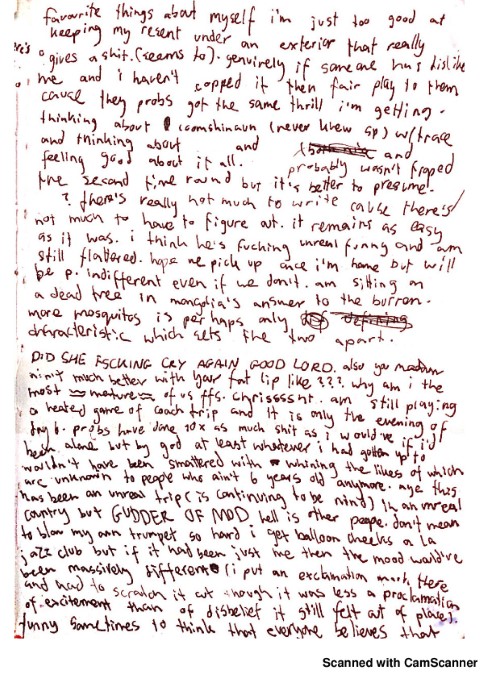 favourite things about myself i'm just too good at
keeping my resent under an exterior that really
gives a shit. (seems to). genuinely if someone has dislike
me and i haven't copped it then fair play to them
cause they probs got the same thrill i'm getting.
thinking about (never knew sp) w/
and thinking about and and
feeling good about it all. probably wasn't
the second time round but it's better to presume.
? there's really not much to write cause there's
not much to have to figure out. it remains as easy
as it was. i think he's fucking unreal funny and am
still flattered. hope we pick up once i'm home but will
be p. indifferent even if we don't. am sitting on
a dead tree in mongolia's answer to the burren.
more mosquitos is perhaps only
characteristic which sets the two apart.
DID SHE FSCKING CRY AGAIN GOOD LORD. also you
much better with your fat lip like ???. why am i the
most mature of us ffs. chrisssssht. am still playing
a heated game of coach trip and it is only the evening of
day 6. probs have done 10x as much shit as i would've if i'd
been alone but by god at least whatever i had gotten up to
wouldn't have been smattered with whining the likes of which
are unknown to people who ain't 6 years old anymore. aye this
has been an unreal trip (is continuing to be nind) in an unreal
country but GUDDER OF MOD. hell is other people. don't mean
to blow my own trumpet so hard i get balloon cheeks a la
jazz club but if it had been just me then the mood would've
been massively different (i put an exclamation mark there
and had to scratch it out though it was less a proclamation
of excitement than of disbelief it still felt out of place).
funny sometimes to think that everyone believes that
Scanned with CamScanner